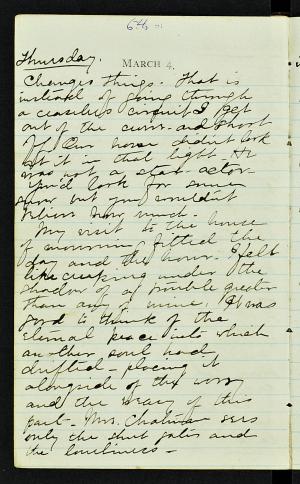 64
Thursday.
MARCH 4.
Changes things. That is
instead of going through
a ceaseless circuit I get
out of the curr- and short
it. Our horse didn't look
at it in that light. He
was not a star actor-
You'd look for some
but you wouldn't
much.
My visit to the house
of mourning fitted the
day and the hour. I felt
like creeping under the
shadow of a trouble greater
than any of mine. It was
good to think of the
eternal peace into which
another soul had
drifted - placing it
alongside of the worry
and the of this
part - Mrs. sees
only the shut gates and
the loneliness -